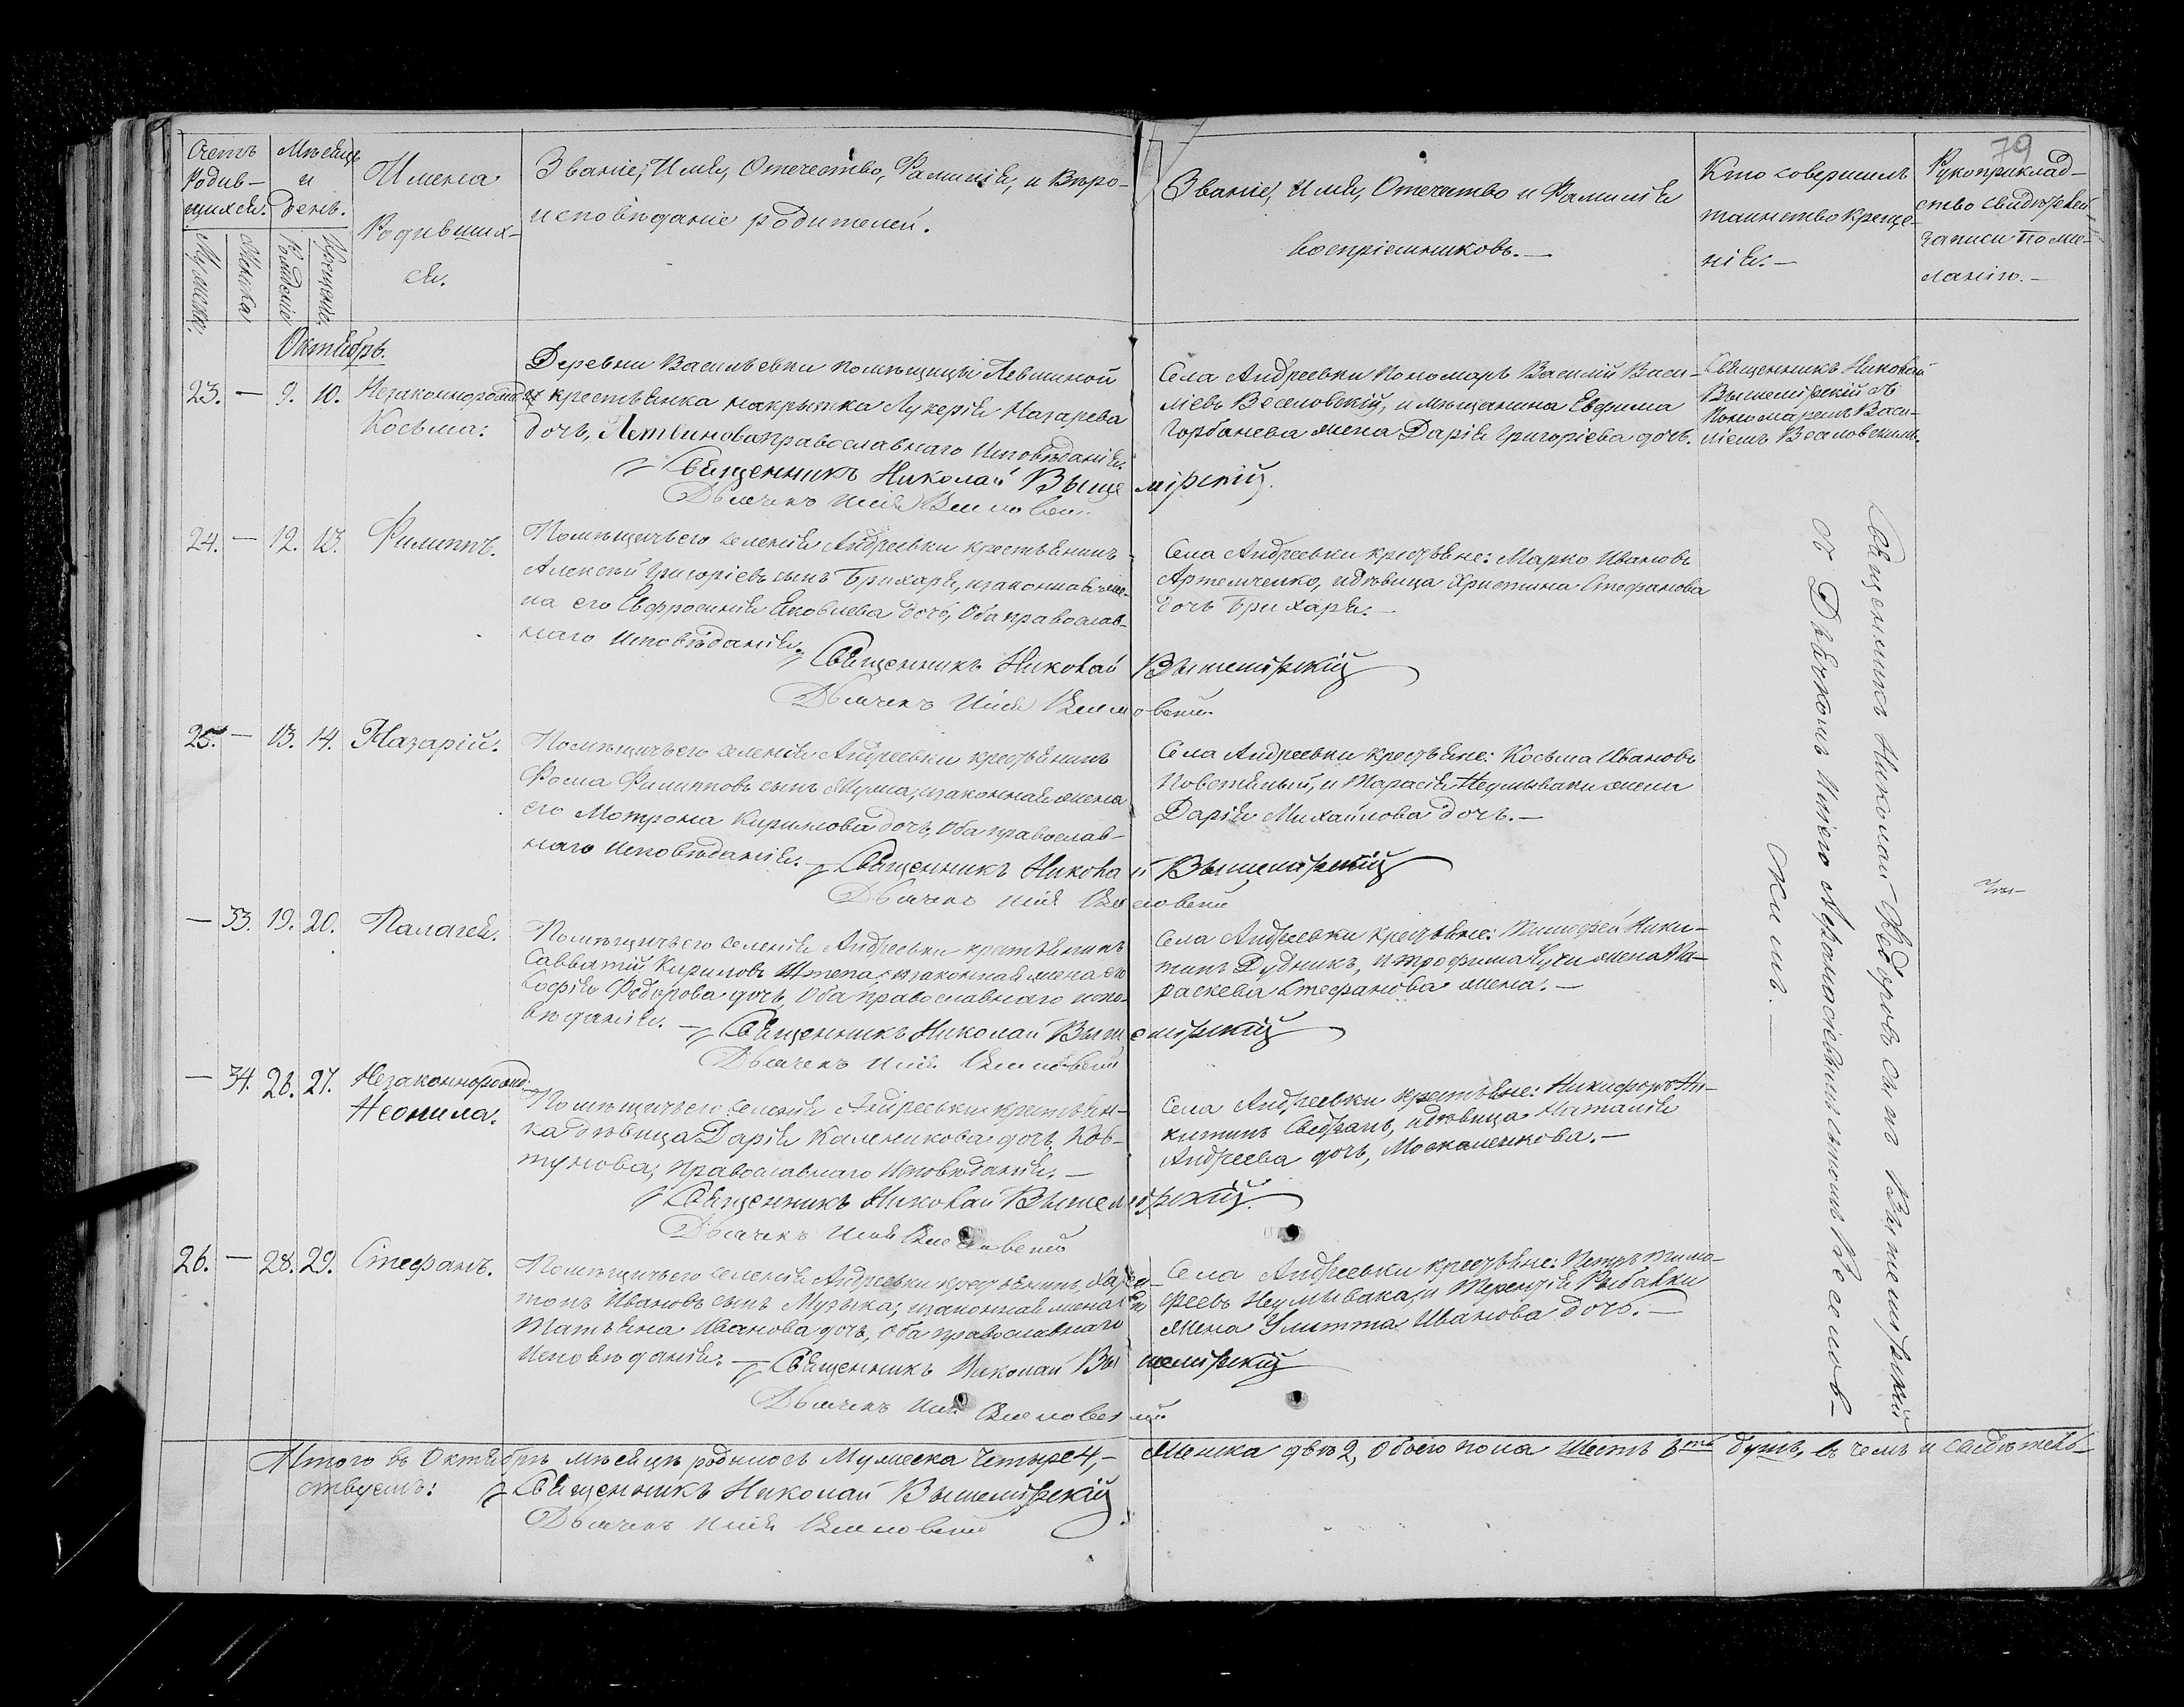 79
Счетъ
Родив-
шихся.
Мѣсяцъ
и
День.
Мужеска.
Женска
Рожденія
Крещенія.
Имена
Родивших-
ся.
Званіе, Имя, Отечество, Фамилія, и Вѣро-
исповѣданіе родителей.
Званіе, Имя, Отечество и Фамилія
воспріемниковъ.—
Кто совершилъ
таинство креще-
нія.—
Рукоприклад-
ство свидѣтелей
записи по же-
ланію.—
Октябрь.
23. — 9. 10. Незаконнорожд.
Косьма:
Деревни Васильевки помѣщицы Левшиной
крестьянка накрытка Лукерія Назарева
дочь, Литвинова православнаго Исповѣданія.
Священникъ Николай Вышемірскій.
Дьячекъ Илія Веселовскій
Села Андреевки Пономарь Василій Васи-
ліевъ Веселовскій, и мѣщанина Евфима
Горбанева жена Дарія Григоріева дочь.
Священникъ Николай
Вышемірскій съ
Пономаремъ Васи-
ліемъ Веселовскимъ.
24. — 12. 13. Филиппъ.
Помѣщичьего селенія Андреевки крестьянинъ
Алексѣй Григоріевъ сынъ Брихаря, изаконная же-
на его Евфросинія Яковлева дочь, Оба православ-
наго Исповѣданія.
Священникъ Николай Вышемірскій
Дьячекъ Илія Веселовскій
Села Андреевки крестьяне: Марко Ивановъ
Артемченко, идѣвица Христина Стефанова
дочь Брихаря.—
25. — 13. 14. Назарій.
Помѣщичьего селенія Андреевки крестьянинъ
Фома Филипповъ сынъ Мула, изаконная жена
его Мотрона Кириллова дочь, Оба православ-
наго Исповѣданія.— Священникъ Николай Вышемірскій
Дьячекъ Илія Веселовскій
Села Андреевки крестьяне: Косьма Ивановъ
Повстяный, и Тарасія Неумываки жена
Дарія Михайлова дочь.—
— 33. 19. 20. Палагея.
Помѣщичьего селенія Андреевки крестьянинъ
Савватій Кириловъ Штепа, изаконная жена его
Софія Федорова дочь, Оба православнаго испо-
вѣданія.— Священникъ Николай Вышемірскій
Дьячекъ Илія Веселовскій
Села Андреевки крестьяне: Тимофей Ники-
тинъ Дудникъ, и Трофима жена Па-
раскева Стефанова жена.—
— 34. 26. 27. Незаконнорожд.
Неонила.
Помѣщичьего селенія Андреевки крестьян-
ка дѣвица Дарія Каленикова дочь, Ков-
тунова, православнаго Исповѣданія.—
Священникъ Николай Вышемірскій.
Дьячекъ Илія Веселовскій
Села Андреевки крестьяне: Никифоръ Ни-
китинъ идѣвица Наталія
Андреева дочь, Москаленкова.—
26. — 28. 29. Стефанъ.
Помѣщичьего селенія Андреевки крестьянинъ, Хари-
тонъ Ивановъ сынъ Музыка, изаконная жена его
Татьяна Иванова дочь, Оба православнаго
Исповѣданія.— Священникъ Николай Вышемірскій
Дьячекъ Илія Веселовскій
Села Андреевки крестьяне: Петръ Тимо-
феевъ Неумывака, и Терентія Рыбалки
жена Улитта Иванова дочь.—
Священникъ Николай Федоровъ сынъ Вышемірскій
съ Дьячкомъ Иліею Афанасіевымъ сыномъ Веселов-
скимъ.—
Итого въ Октябрѣ мѣсяцѣ родилось Мужеска Четыре 4,— Женска двѣ 2, Обоего пола Шесть 6ть душъ, въ чемъ и свидѣтель-
ствуемъ: Священникъ Николай Вышемірскій
Дьячекъ Илія Веселовскій